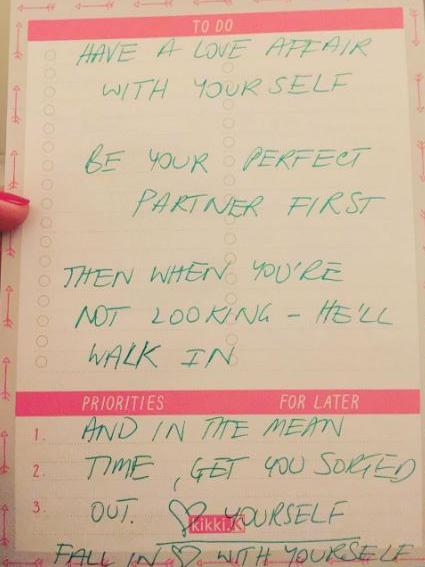 TO DO
HAVE A LOVE AFFAIR
WITH YOURSELF
BE YOUR PERFECT
PARTNER FIRST
THEN WHEN YOU'RE
NOT LOOKING - HE'LL
WALK IN
PRIORITIES FOR LATER
1. AND IN THE MEAN
2. TIME, GET YOU SORTED
3. OUT. ♡ YOURSELF
kikki.K
FALL IN ♡ WITH YOURSELF